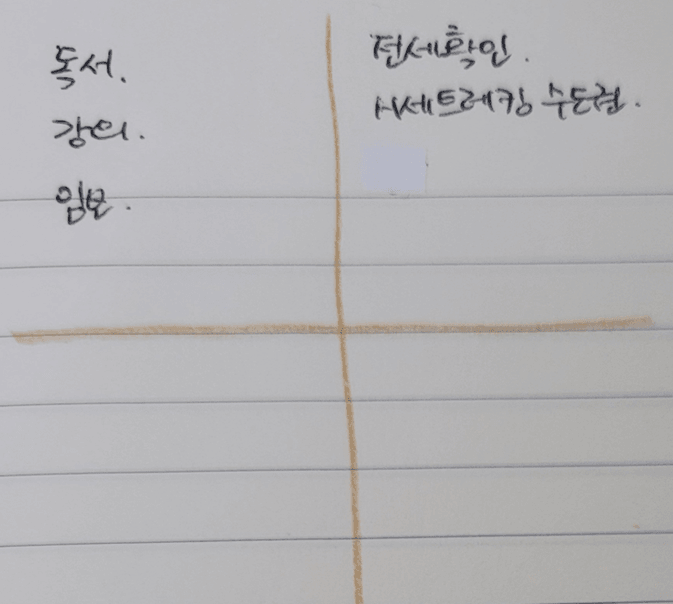 독서.
강의.
임보.
전세확인.
시세트레킹 수도권.